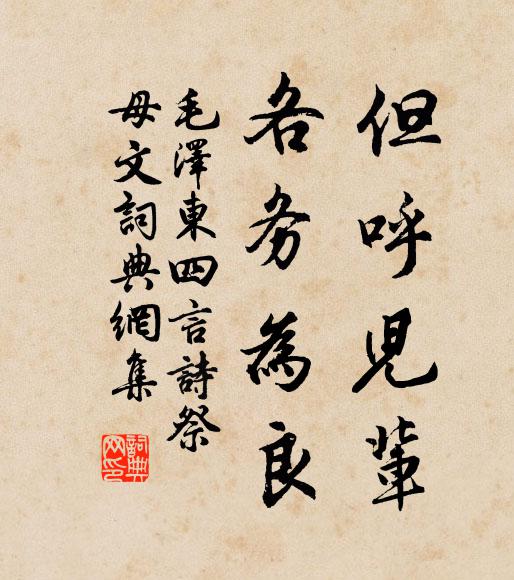 但呼兒輩
各务為良
毛澤東四言詩祭
母文詞典網集
詞典网印